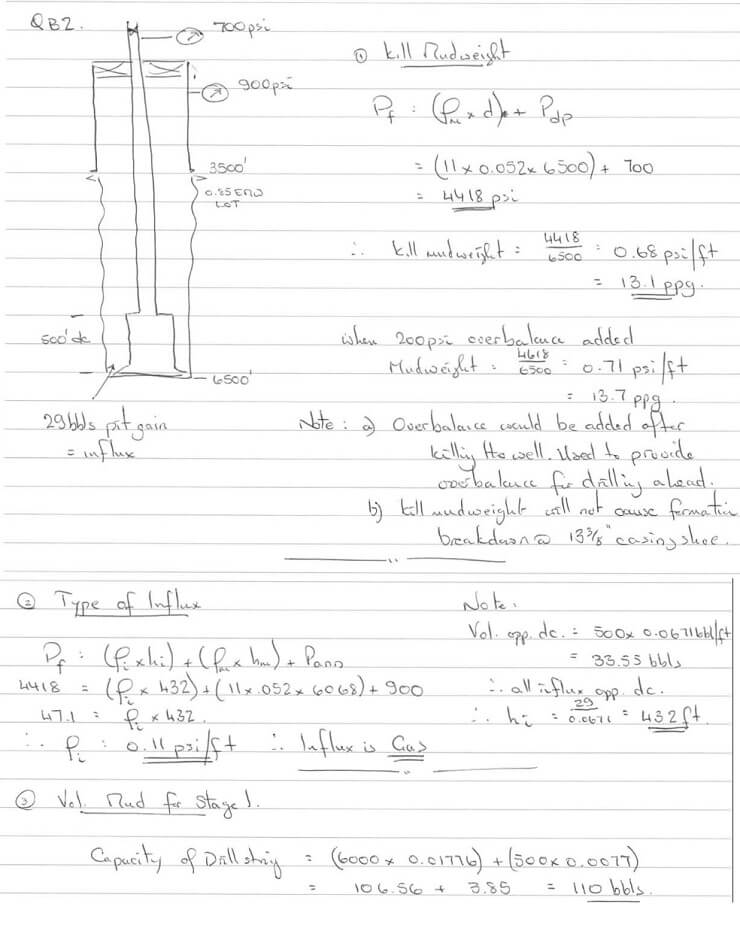 QB2.
700psi
900psi
3500'
0.85 EMW
LOT
500' dc
6500'
29bbls pit gain
= influx
① Kill Mudweight
Pf : (ρm x d) + Pdp
= (11 x 0.052 x 6500) + 700
= 4418 psi
∴ Kill mudweight = 4418/6500 = 0.68 psi/ft
= 13.1 ppg.
when 200psi overbalance added
Mudweight = 4618/6500 = 0.71 psi/ft
= 13.7 ppg.
Note: a) Overbalance would be added after
killing the well. Used to provide
overbalance for drilling ahead.
b) Kill mudweight will not cause formation
breakdown @ 13 3/8" casing shoe.
② Type of Influx
Pf : (ρi x hi) + (ρm x hm) + Pann
4418 = (ρi x 432) + (11 x .052 x 6068) + 900
47.1 = ρi x 432.
∴ ρi : 0.11 psi/ft ∴ Influx is Gas
Note.
Vol. opp. dc. = 500 x 0.0671 bbl/ft
= 33.55 bbls
∴ all influx opp. dc.
∴ hi = 29/0.0671 = 432 ft.
③ Vol. Mud for Stage 1.
Capacity of Drillstring = (6000 x 0.01776) + (500 x 0.0077)
= 106.56 + 3.85 = 110 bbls.